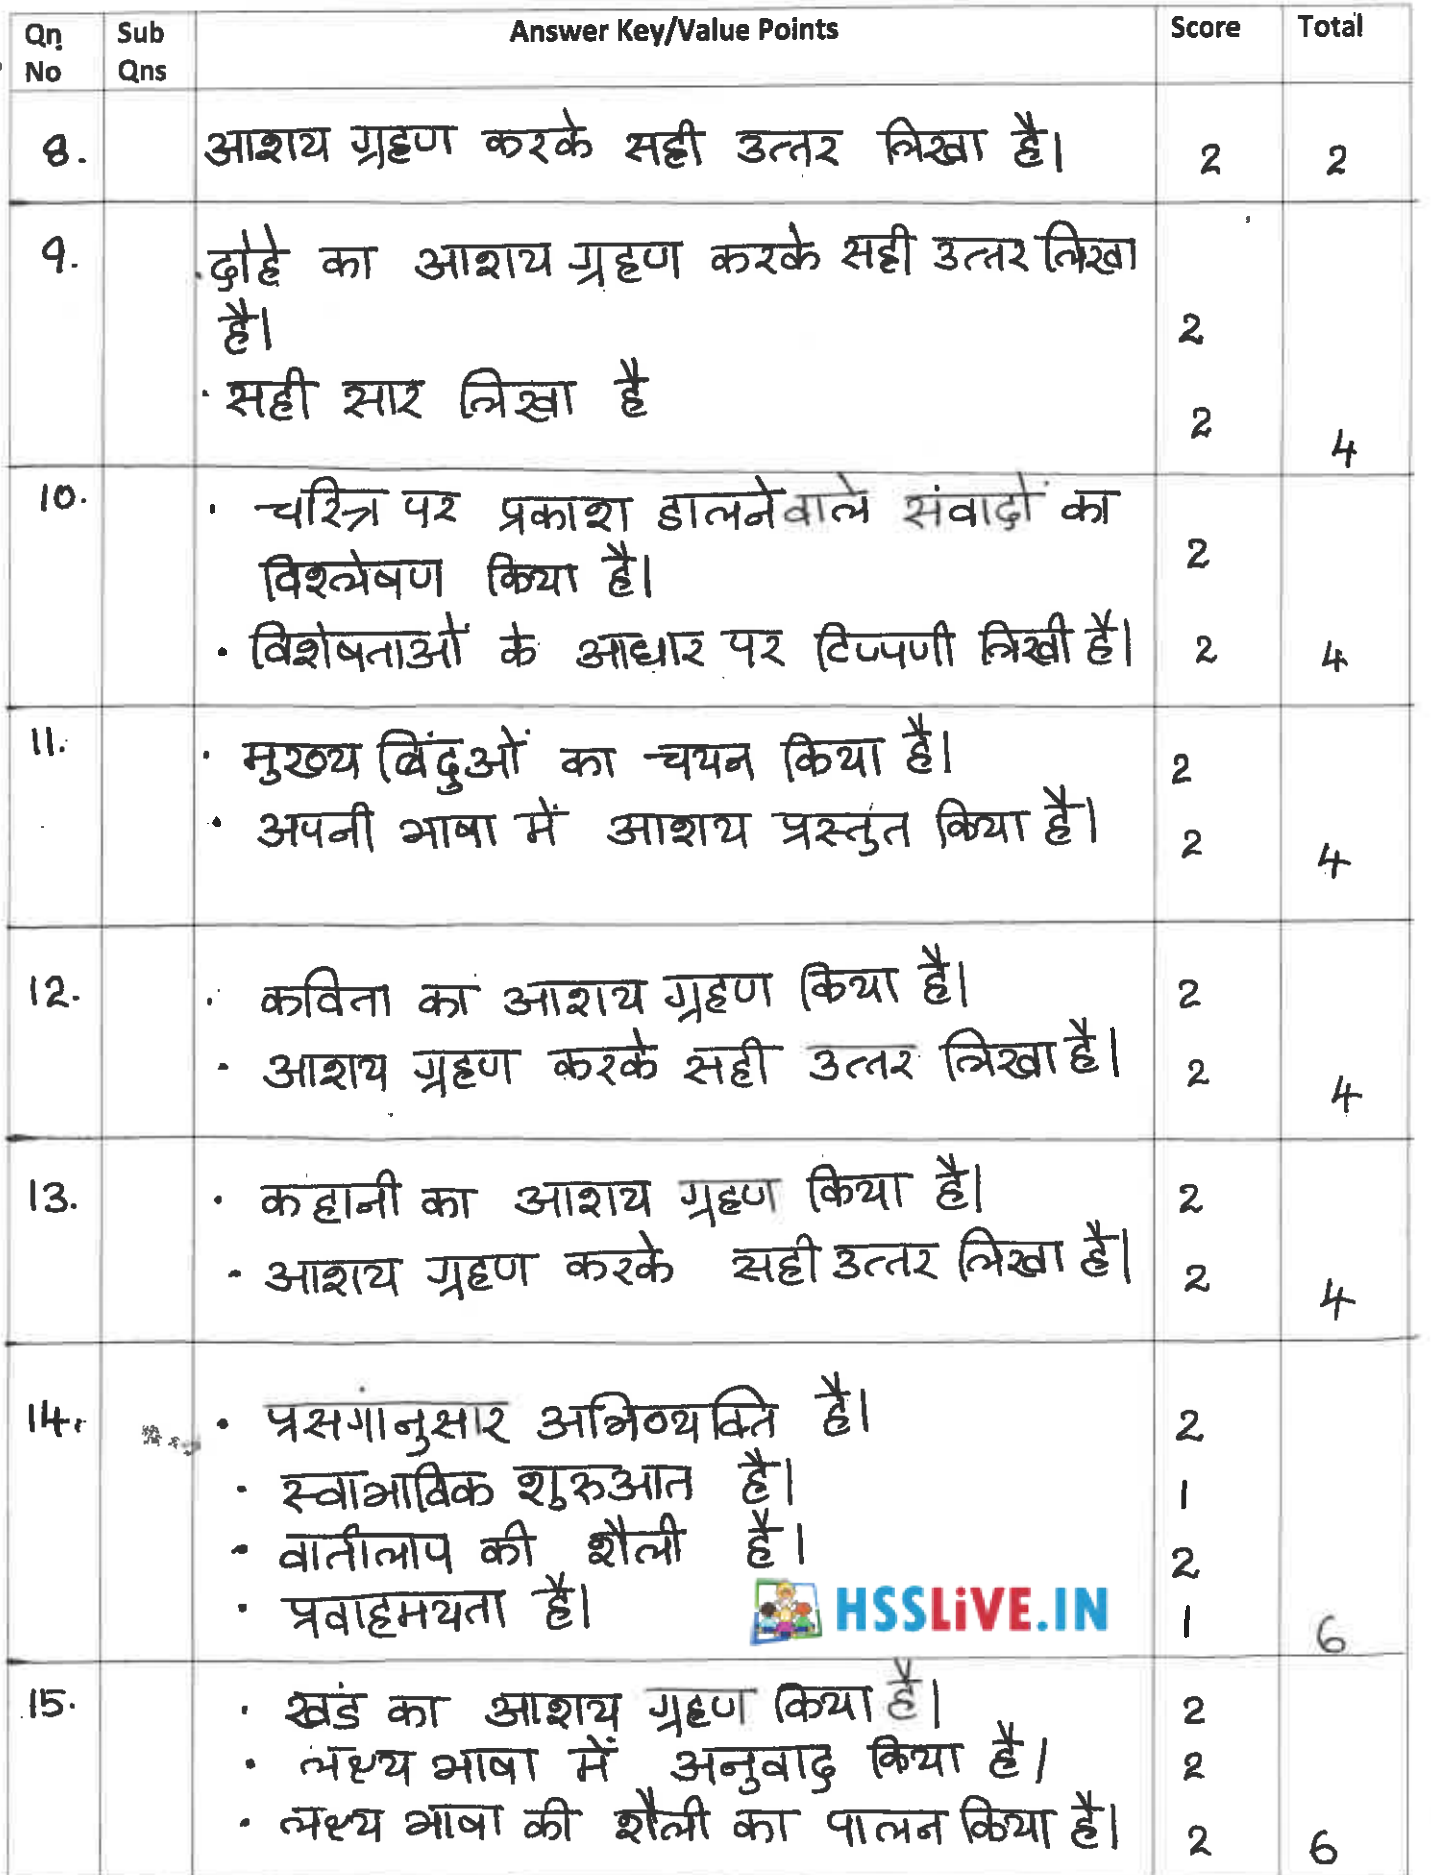 Qn No Sub Qns Answer Key/Value Points Score Total
8. आशय ग्रहण करके सही उत्तर लिखा है। 2 2
9. दोहे का आशय ग्रहण करके सही उत्तर लिखा
है। 2
· सही सार लिखा है 2 4
10. · चरित्र पर प्रकाश डालनेवाले संवादों का
विश्लेषण किया है। 2
· विशेषताओं के आधार पर टिप्पणी लिखी है। 2 4
11. · मुख्य बिंदुओं का चयन किया है। 2
· अपनी भाषा में आशय प्रस्तुत किया है। 2 4
12. · कविता का आशय ग्रहण किया है। 2
· आशय ग्रहण करके सही उत्तर लिखा है। 2 4
13. · कहानी का आशय ग्रहण किया है। 2
· आशय ग्रहण करके सही उत्तर लिखा है। 2 4
14. · प्रसंगानुसार अभिव्यक्ति है। 2
· स्वाभाविक शुरुआत है। 1
· वार्तालाप की शैली है। 2
· प्रवाहमयता है। 1 6
HSSLiVE.IN
15. · खंड का आशय ग्रहण किया है। 2
· लक्ष्य भाषा में अनुवाद किया है। 2
· लक्ष्य भाषा की शैली का पालन किया है। 2 6